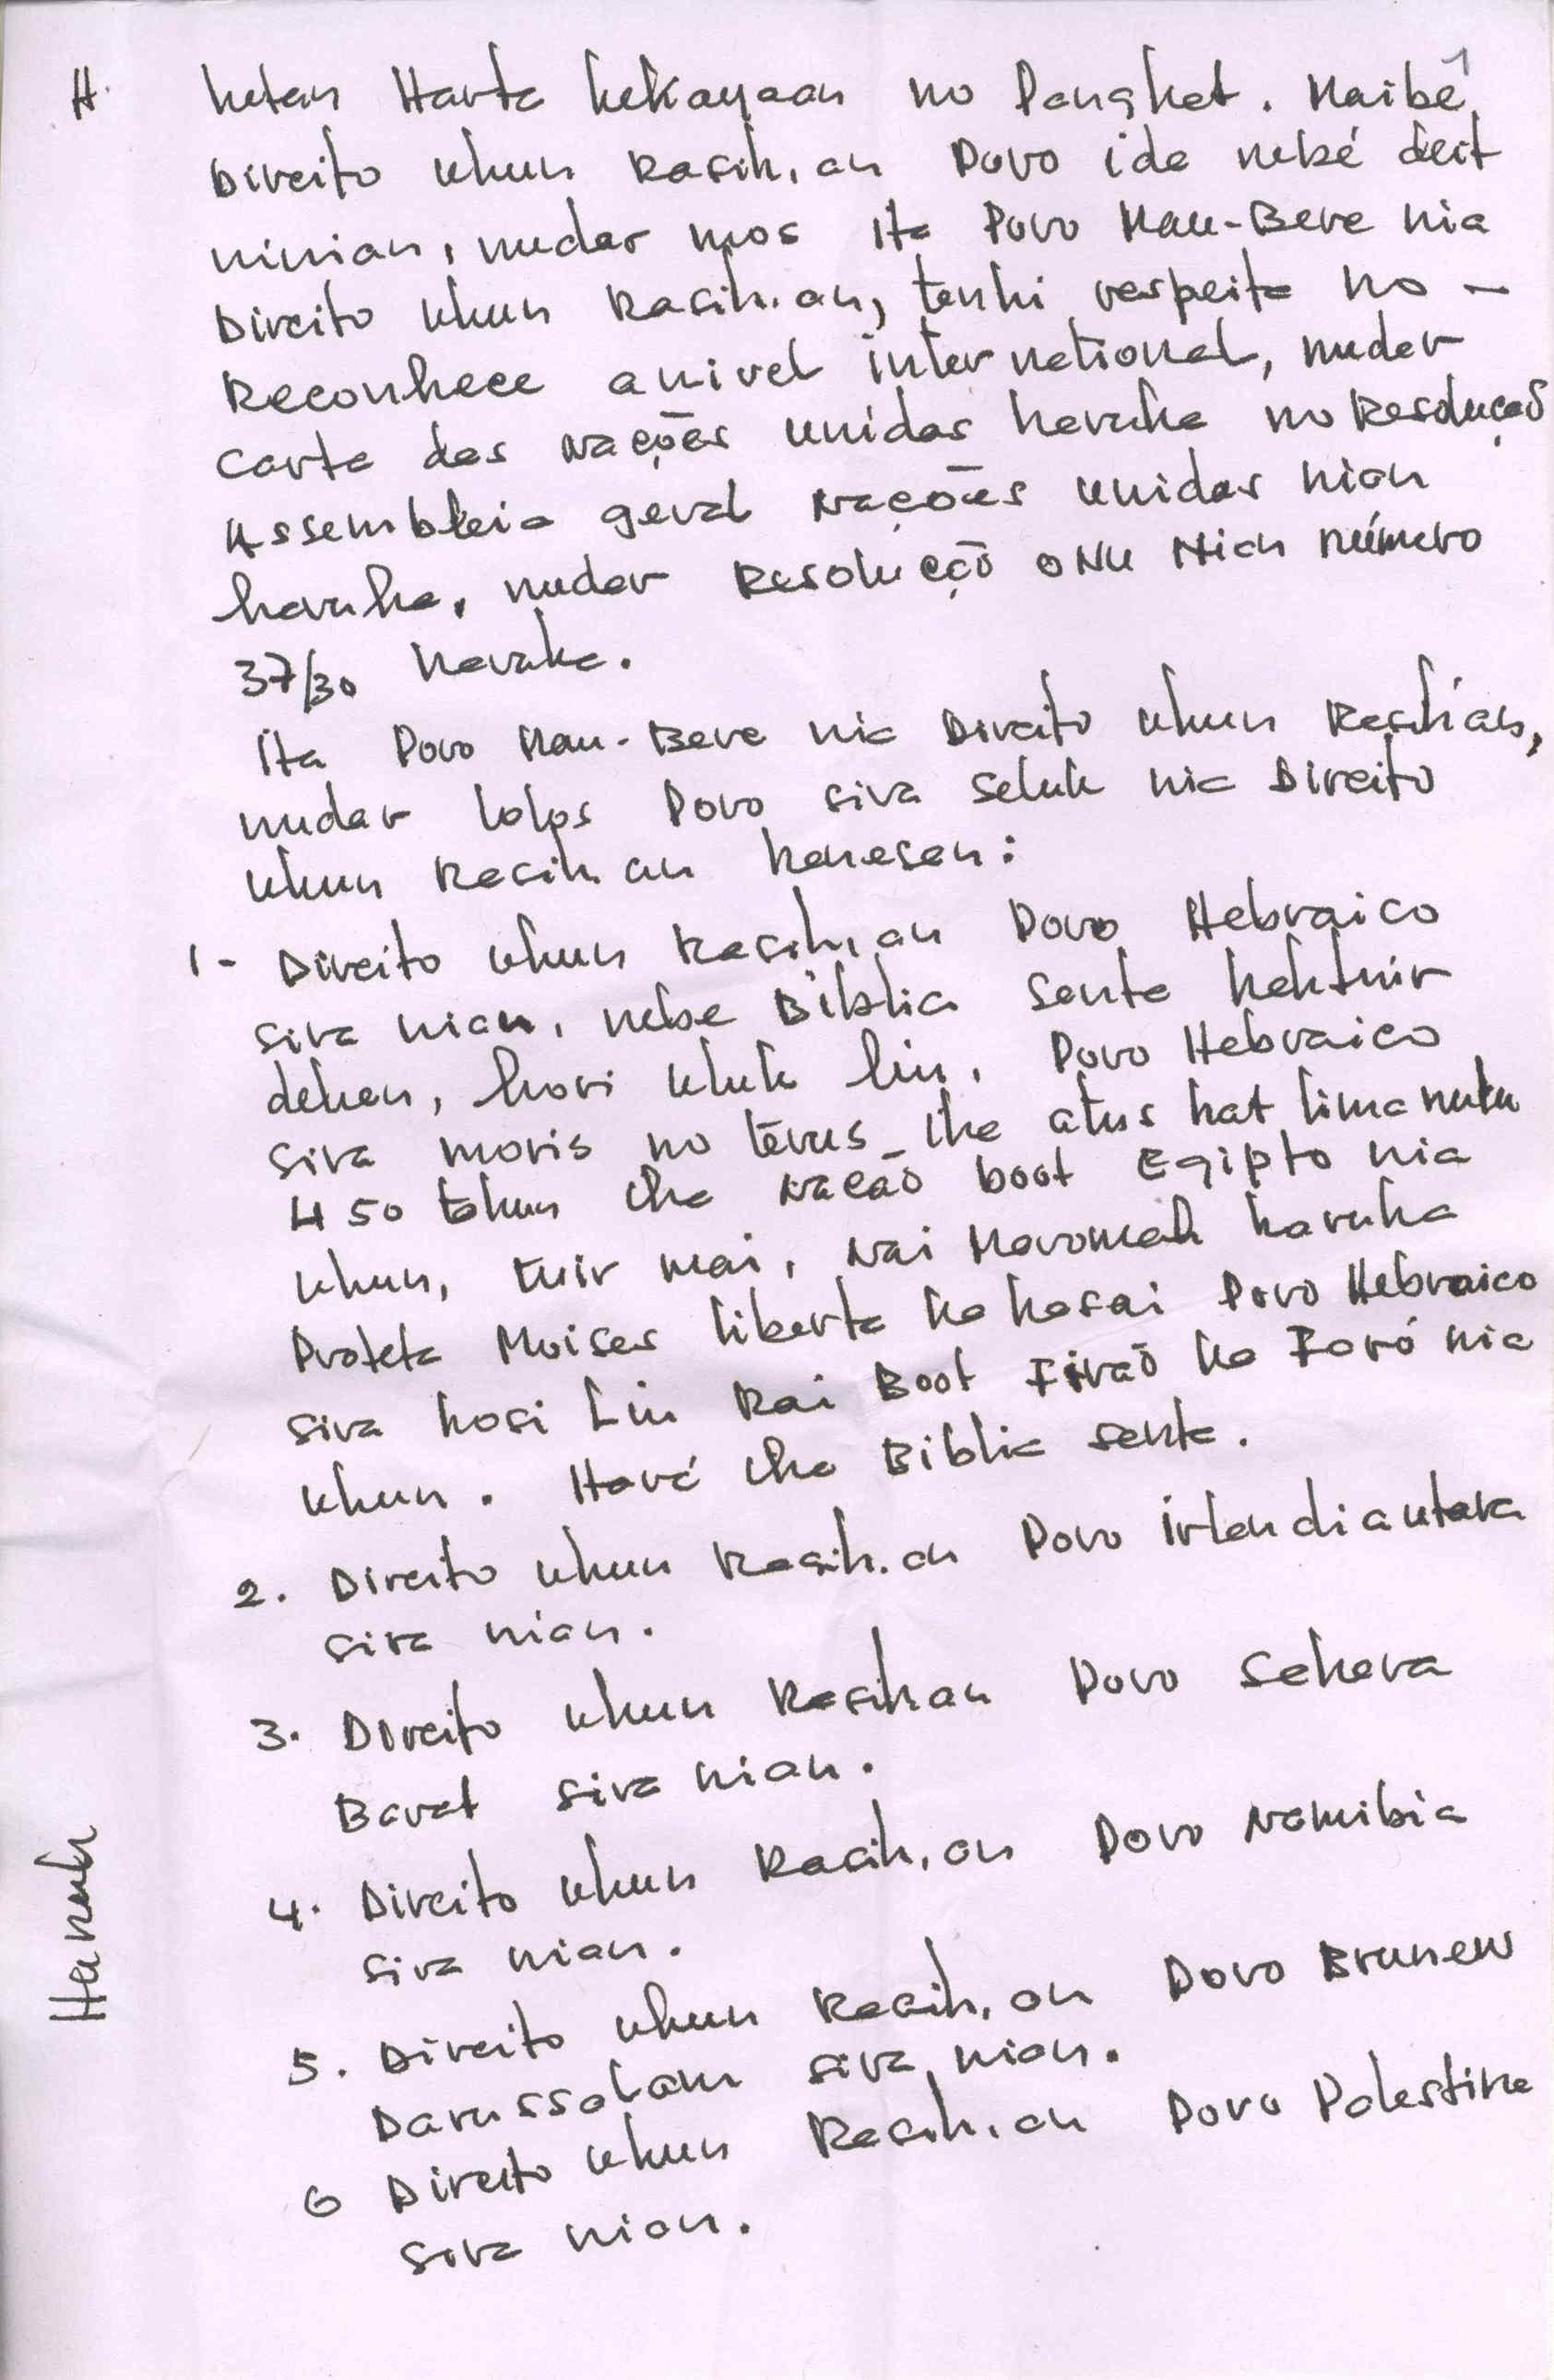 H. hetan Harta kekayaan no Pangkat. Maibé
Direito ukun Rasik, an Povo ida nebé deit
ninian, nudar mos ita Povo Mau-Bere nia
Direito ukun Rasik.an, tenki respeita no –
Reconhece a nivel international, nudar
Carta das Nações Unidas haruka no Resolução
Assembleia geral Nações Unidas nian
haruka, nudar Resolução ONU Nian número
37/30 haruka.
Ita Povo Mau-Bere nia Direito ukun Rasik'an,
nudar lolos Povo sira seluk nia Direito
ukun Rasik an hanesan:
1- Direito ukun Rasik, an Povo Hebraico
sira nian, nebe Biblia Santa haktuir
dehan, hori uluk liu, Povo Hebraico
sira moris no terus iha atus hat lima nulu
450 tahun iha Nação boot Egipto nia
ukun, tuir mai, Nai Maromak haruka
Profeta Moises liberta ka hasai Povo Hebraico
sira hosi Liu Rai Boot Firaõ ka Faró nia
ukun. Haré iha Biblia santa.
2. Direito ukun Rasik.an Povo irlandia utara
sira nian.
3. Direito ukun Rasik an Povo Sahara
Barat sira nian.
4. Direito ukun Rasik, an Povo Namibia
sira nian.
5. Direito ukun Rasik, an Povo Brunew
Darussalam sira nian.
6 Direito ukun Rasik, an Povo Palestina
sira nian.
Hanuk